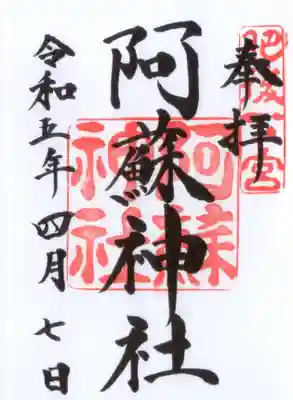 奉拝
肥後一宮
阿蘇神社
阿蘇神社
令和五年四月七日